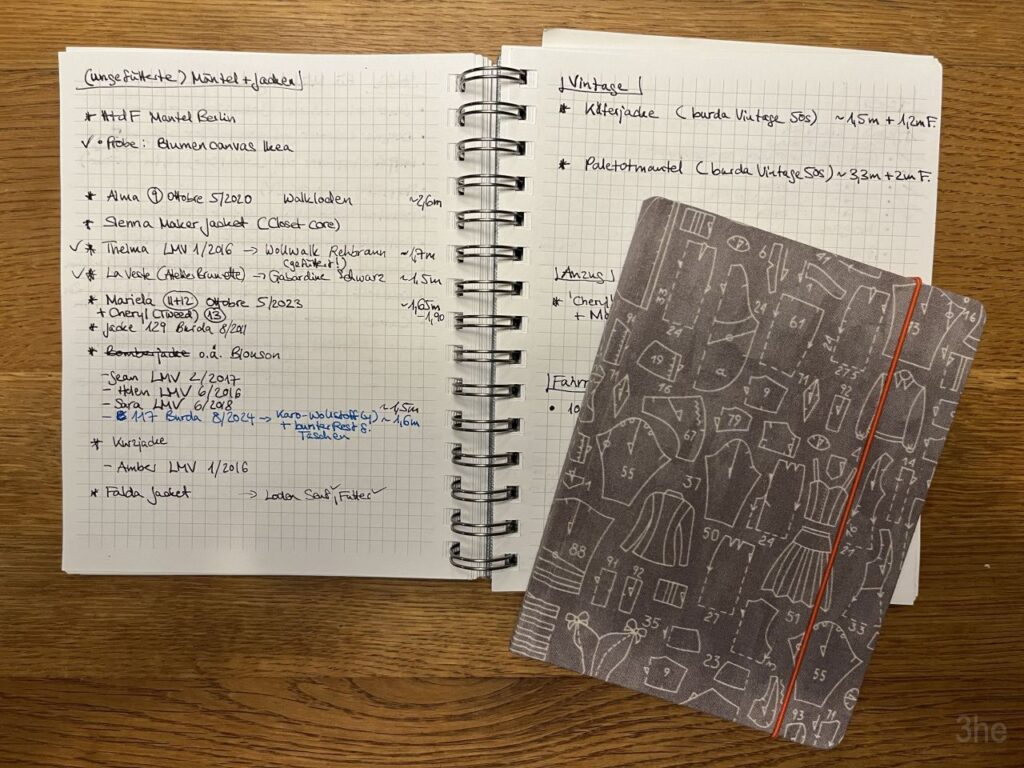 (ungefütterte) Mäntel + Jacken
* HdF Mantel Berlin
✓ • Probe: Blumencanvas Ikea
* Alma (9) Ottobre 5/2020 Walkloden ~2,6m
* Sienna Maker Jacket (Closet core)
✓ * Thelma LMV 1/2016 → Wollwalk Rehbraun ~1,7m
(gefüttert!)
✓ * La Veste (Atelier Brunette) → Gabardine schwarz ~1,5m
* Mariela (11+12) Ottobre 5/2023 ~1,65m
+ Cheryl (Tweed) (13) -1,90
* Jacke 129 Burda 8/2011
* Bomberjacke o.ä. Blouson
- Sean LMV 2/2017
- Helen LMV 6/2016
- Sara LMV 6/2018 ~1,5m
- 117 Burda 8/2024 → Karo-Wollstoff ~1,6m
+ bunter Rest f.
Taschen
* Kurzjacke
- Amber LMV 1/2016
* Falda Jacket → Loden Senf ✓, Futter ✓
Vintage
* Käferjacke (burda Vintage 50s) ~1,5m + 1,2m F.
* Paletotmantel (burda Vintage 50s) ~3,3m + 2m F.
Anzug
* 'Cheryl'
+ Mo
Fahrr
• 10
41
6
1
24
61
24
24
273
73
16
91
19
16
a
9
11
92
67
55
37
50
24
21
88
91
92
27
51
33
35
9
23
55
93
71
3he